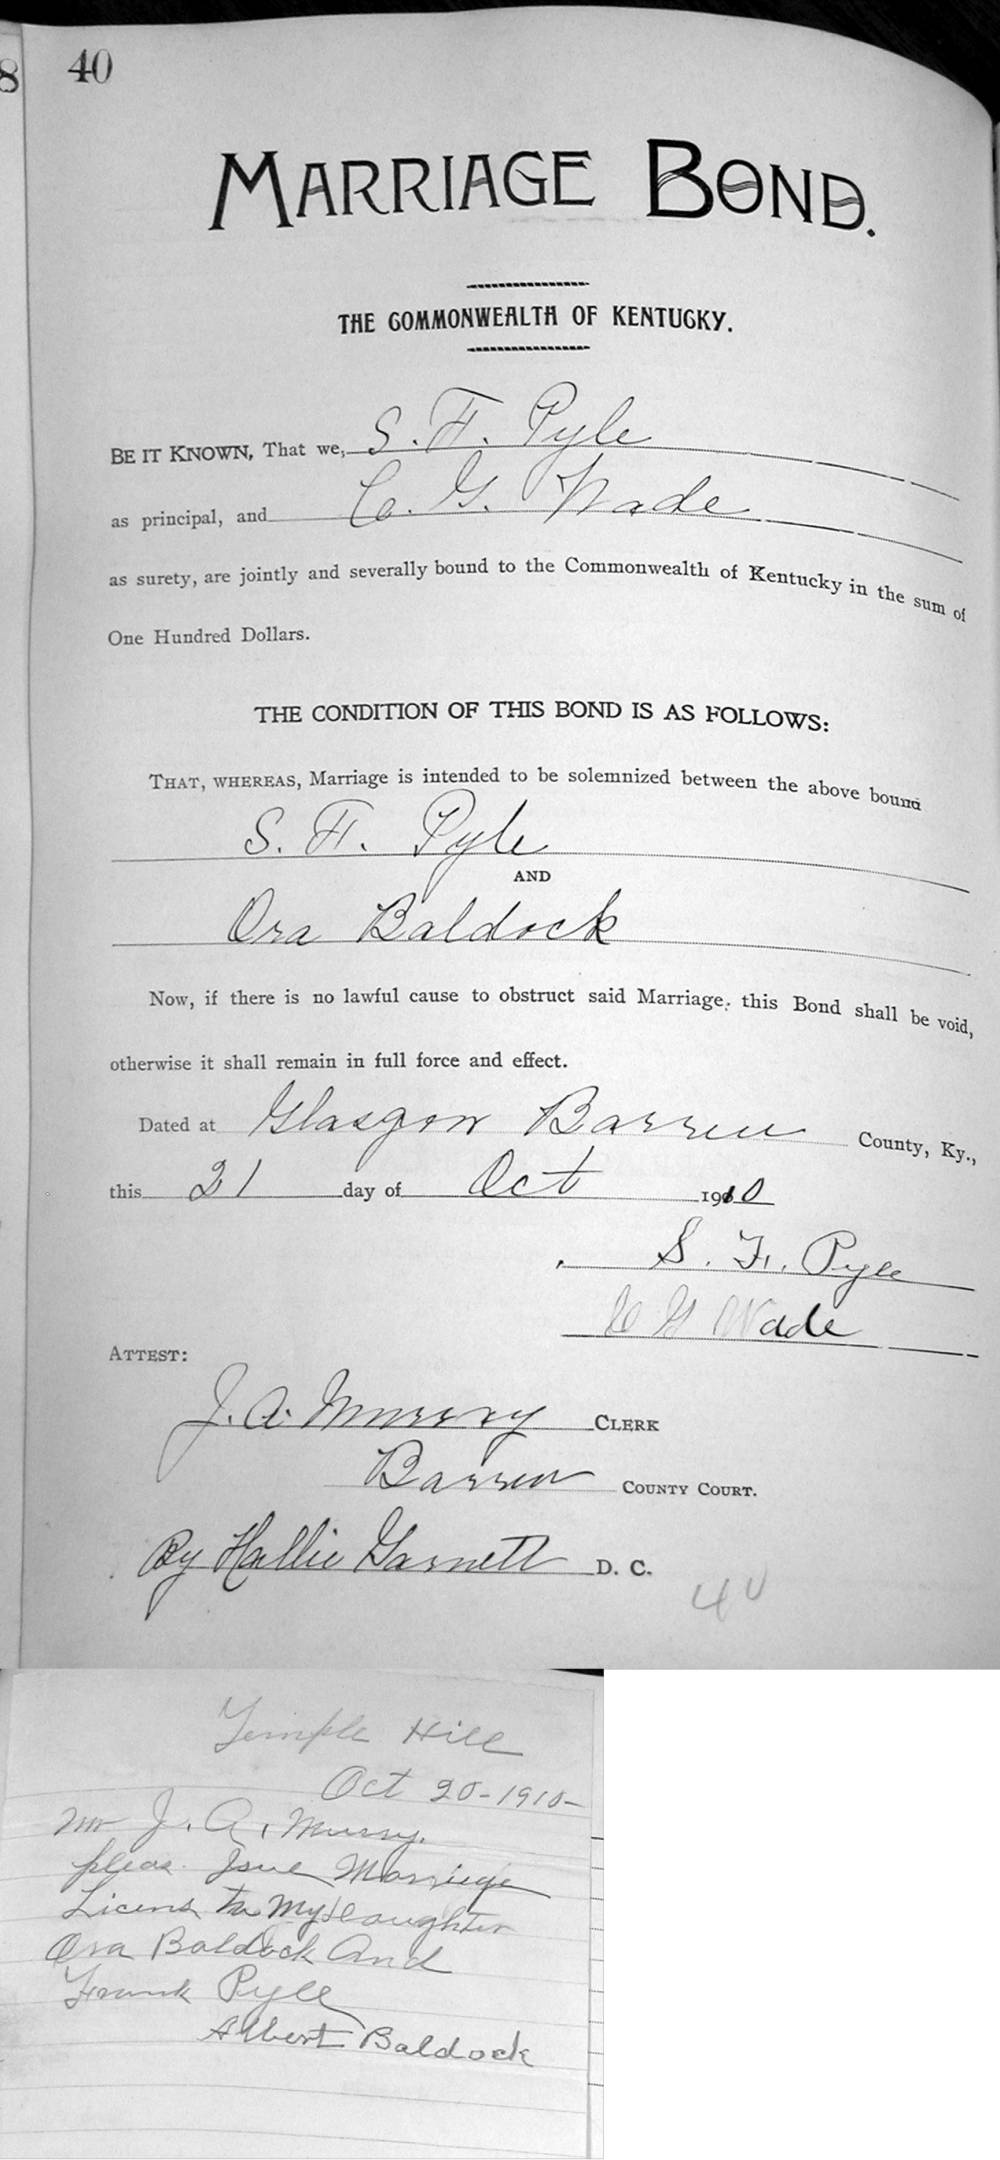 8
40
MARRIAGE BOND.
THE COMMONWEALTH OF KENTUCKY.
BE IT KNOWN, That we, S. F. Pyle
as principal, and C. G. Wade
as surety, are jointly and severally bound to the Commonwealth of Kentucky in the sum of
One Hundred Dollars.
THE CONDITION OF THIS BOND IS AS FOLLOWS:
THAT, WHEREAS, Marriage is intended to be solemnized between the above bound
S. F. Pyle
AND
Ora Baldock
Now, if there is no lawful cause to obstruct said Marriage, this Bond shall be void,
otherwise it shall remain in full force and effect.
Dated at Glasgow Barren County, Ky.,
this 21 day of Oct 1910
S. F. Pyle
C G Wade
ATTEST:
J. A. Murray CLERK
Barren COUNTY COURT.
By Hallie Garnett D. C.
40
Temple Hill
Oct 20-1910-
Mr J. A. Murry.
pleas Isue Marriage
Licens to My Daughter
Ora Baldock And
Frank Pyle
Albert Baldock